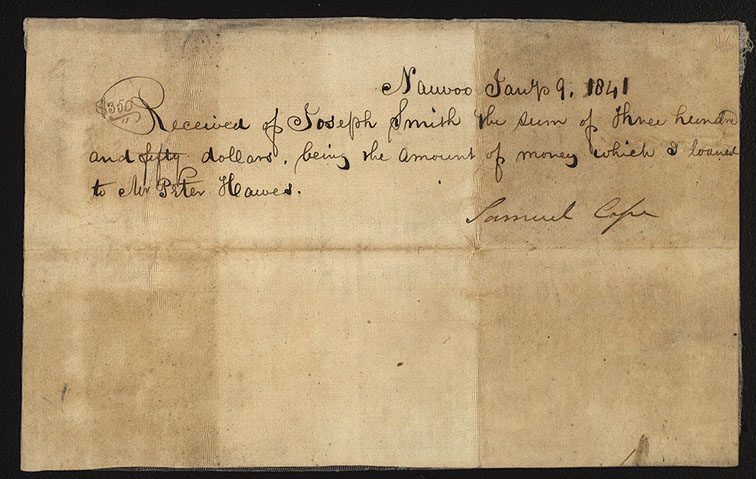 Nauvoo Jany 9. 1841
$350 Received of Joseph Smith the sum of three hundre
and fifty dollars, being the amount of money which I loaned
to Mr Peter Hawes.
Samuel Cope